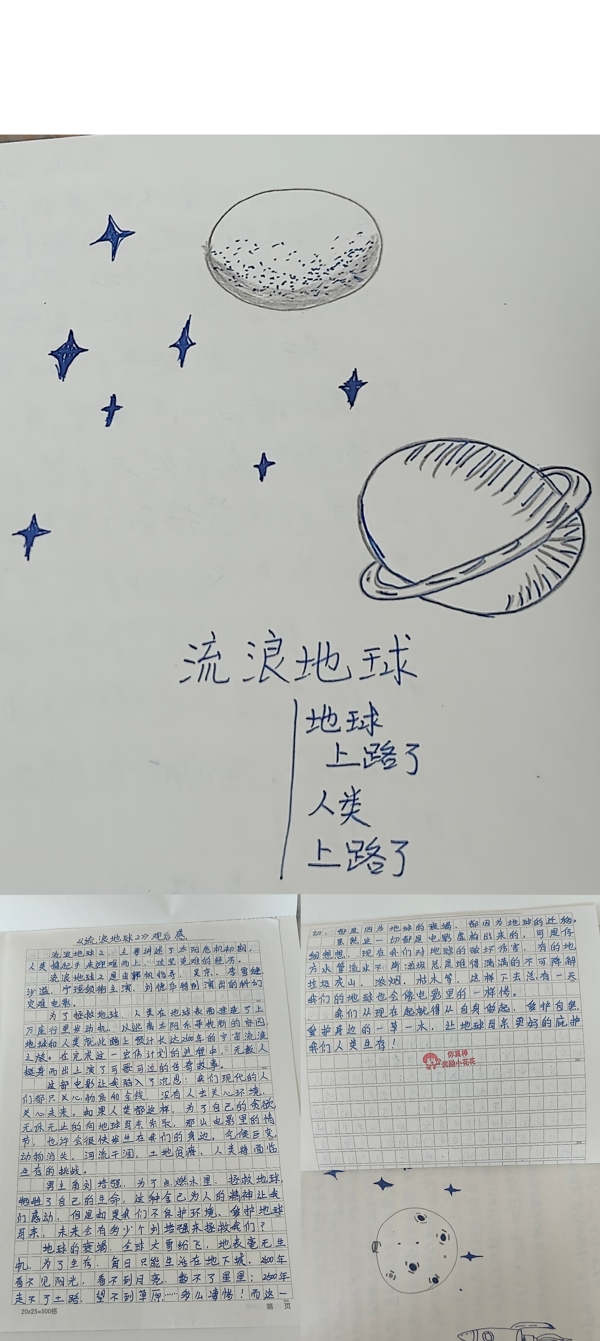 流浪地球
地球
上路了
人类
上路了
《流浪地球2》观后感
流浪地球2，主要讲述了太阳危机初期，
人类携起手来迎难而上，这里克难的经历。
流浪地球2是由郭帆指导，吴京、李雪健
沙溢、宁理领衔主演，刘德华特别演出的科幻
灾难电影。
为了拯救地球，人类在地球表面建造了上
万座行星发动机，以逃离太阳系寻找新的家园，
地球和人类就此踏上预计长达2500年的宇宙流浪
之旅。在完成这一宏伟计划的进程中，无数人
挺身而出上演了可歌可泣的传奇故事。
这部电影让我陷入了沉思：我们现代的人
们都只关心物质和金钱，没有人去关心环境，
关心未来。如果人类都这样，为了自己的贪欲，
无休无止的向地球身索取，那么电影里的情
节，也许会很快发生在我们的身边，气候巨变，
动物消失，河流干涸，土地贫瘠，人类将面临
生存的挑战。
男主角刘培强，为了点燃木星，拯救地球，
牺牲了自己的生命，这种舍己为人的精神让我
们感动，但是如果我们不保护环境、爱护地球
母亲，未来会有多少个刘培强来拯救我们？
地球的衰竭，全球大雪纷飞，地表毫无生
机，为了生存，每日只能生活在地下城，2500年
看不见阳光，看不到月亮，数不了星星；2500年
走不了土路，望不到草原……多么凄惨！而这一
20x25=500格
第 页
切，都是因为地球的衰竭，都因为地球的迁移。
虽然这一切都是电影虚构出来的，可是仔
细想想，现在我们对地球的破坏伤害，有的地
方水管流水不断，垃圾总是堆得满满的不可降解
垃圾成山，浓烟、枯木等，这样下去总有一天
我们的地球也会像电影里的一样惨。
我们从现在起就得从自身做起，爱护自然，
爱护身边的一草一木，让地球母亲更好的庇护
我们人类生存！
你真棒
奖励小花花